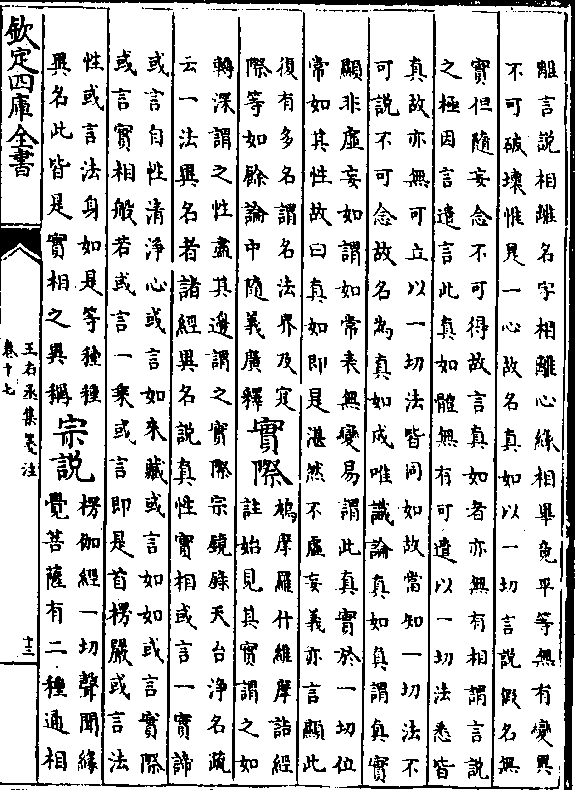 離言說相離名字相離心緣相畢竟平等無有變異
不可破壞惟是一心故名真如以一切言說假名無
實但隨妄念不可得故言真如者亦無有相謂言說
之極因言遣言此真如體無有可遣以一切法悉皆
真故亦無可立以一切法皆同如故當知一切法不
可說不可念故名為真如成唯識論真如真謂真實
顯非虛妄如謂如常表無變易謂此真實於一切位
常如其性故曰真如即是湛然不虛妄義亦言顯此
復有多名謂名法界及定
際等如餘論中隨義廣釋
實際
鳩摩羅什維摩詰經
註始見其實謂之如
轉深謂之性盡其邊謂之實際宗鏡錄天台淨名疏
云一法異名者諸經異名說真性實相或言一實諦
或言自性清淨心或言如來藏或言如如或言實際
或言實相般若或言一乘或言即是首楞嚴或言法
性或言法身如是等種種
異名此皆是實相之異稱
宗說
楞伽經一切聲聞緣
覺菩薩有二種通相
欽定四庫全書
王右丞集箋注
卷十七
十三